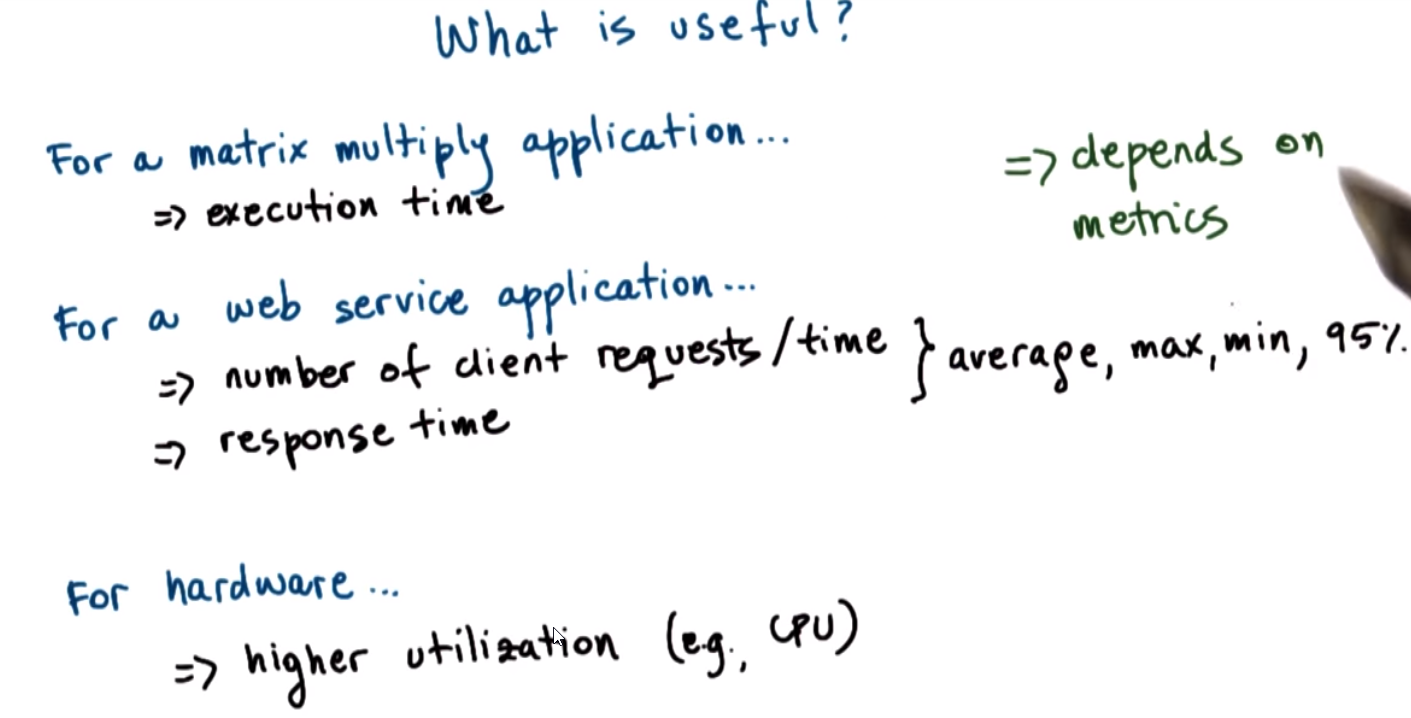 What is useful?
For a matrix multiply application...
=> execution time
=> depends on
metrics
For a web service application...
=> number of client requests/time } average, max, min, 95%.
=> response time
For hardware...
=> higher utilization (e.g., CPU)